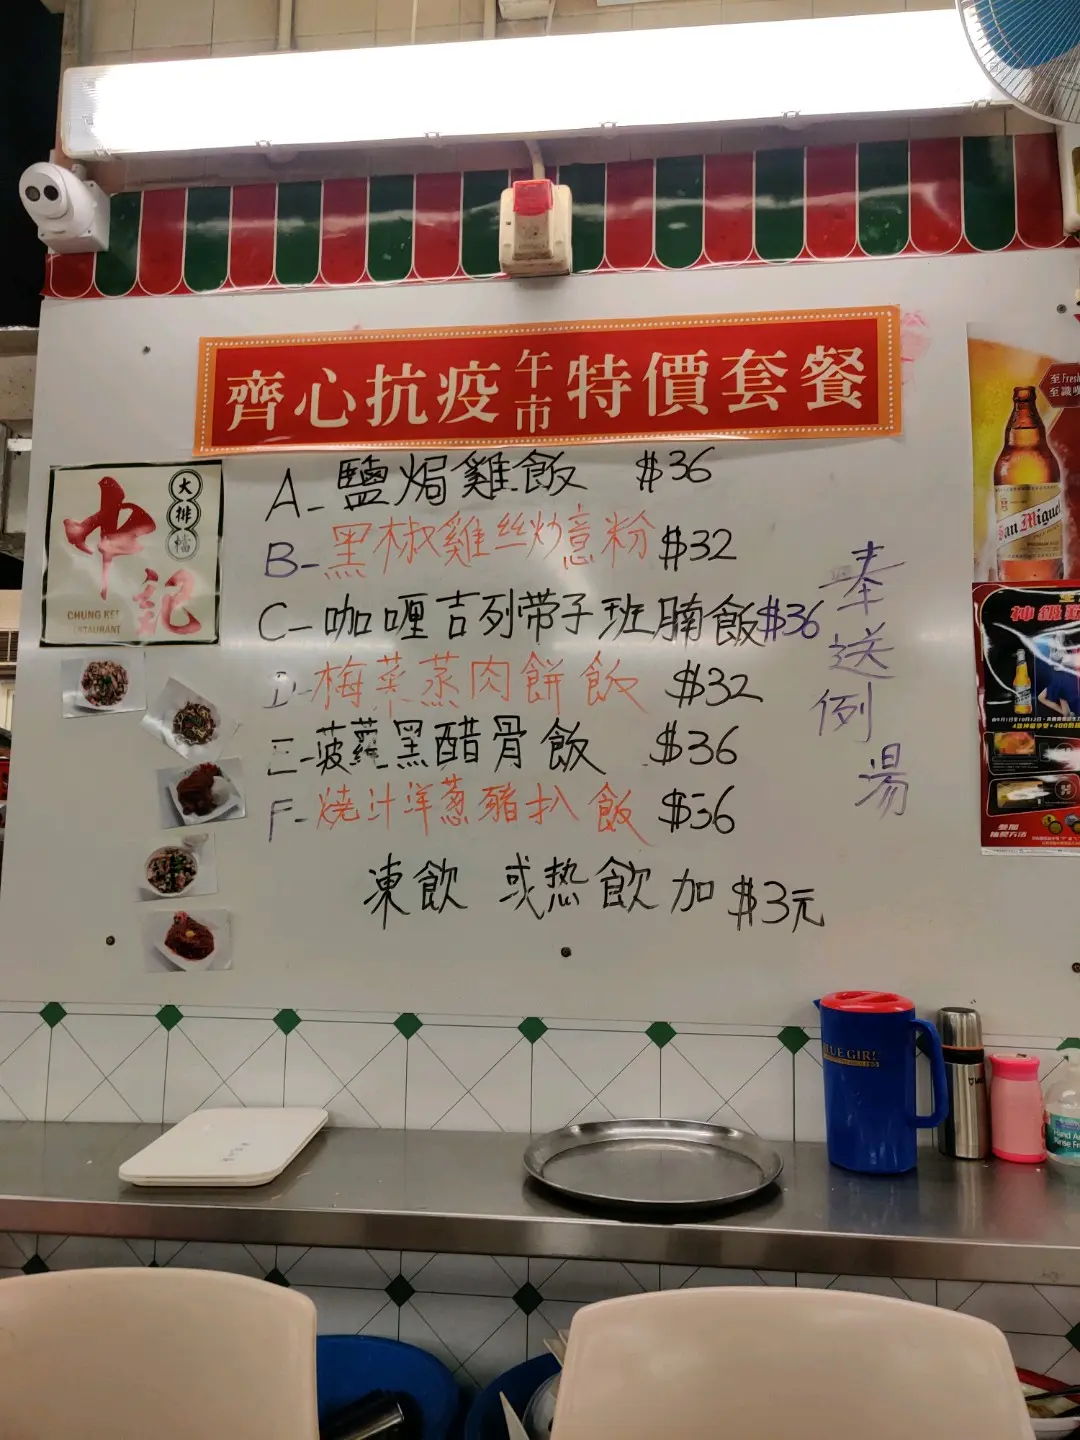 齊心抗疫午市特價套餐
大排檔
中記
CHUNG KEE
RESTAURANT
A-鹽焗雞飯 $36
B-黑椒雞絲炒意粉 $32
C-咖喱吉列带子班腩飯 $36
D-梅菜蒸肉餅飯 $32
E-菠蘿黑醋骨飯 $36
F-燒汁洋葱豬扒飯 $36
凍飲 或热飲加 $3元
奉送例湯
San Miguel
BLUE GIRL